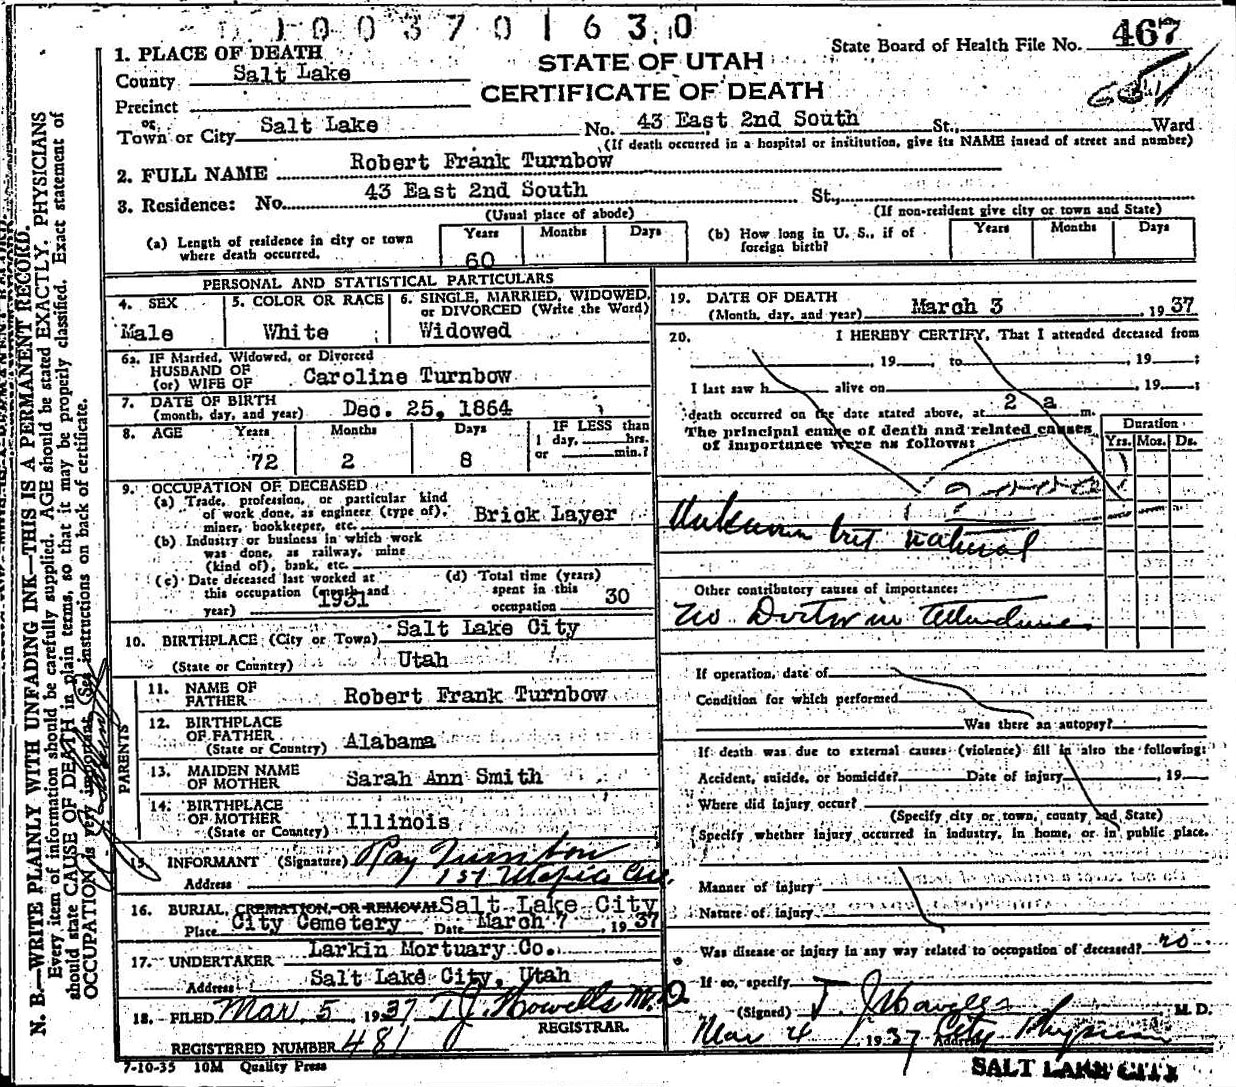 1003701630
State Board of Health File No. 467
1. PLACE OF DEATH
STATE OF UTAH
County Salt Lake
CERTIFICATE OF DEATH
Precinct
or
Town or City Salt Lake No. 43 East 2nd South St., Ward
(If death occurred in a hospital or institution, give its NAME insead of street and number)
2. FULL NAME Robert Frank Turnbow
3. Residence: No. 43 East 2nd South St.,
(Usual place of abode) (If non-resident give city or town and State)
(a) Length of residence in city or town where death occurred. Years 60 Months Days
(b) How long in U. S., if of foreign birth? Years Months Days
PERSONAL AND STATISTICAL PARTICULARS
4. SEX Male
5. COLOR OR RACE White
6. SINGLE, MARRIED, WIDOWED, or DIVORCED (Write the Word) Widowed
6a. IF Married, Widowed, or Divorced
HUSBAND OF
(or) WIFE OF Caroline Turnbow
7. DATE OF BIRTH
(month, day, and year) Dec. 25, 1864
8. AGE Years 72 Months 2 Days 8 IF LESS than
1 day, hrs.
or min.?
9. OCCUPATION OF DECEASED
(a) Trade, profession, or particular kind
of work done, as engineer (type of),
miner, bookkeeper, etc. Brick Layer
(b) Industry or business in which work
was done, as railway, mine
(kind of), bank, etc.
(c) Date deceased last worked at
this occupation (month and
year) 1931
(d) Total time (years)
spent in this
occupation 30
10. BIRTHPLACE (City or Town) Salt Lake City
(State or Country) Utah
PARENTS
11. NAME OF FATHER Robert Frank Turnbow
12. BIRTHPLACE OF FATHER
(State or Country) Alabama
13. MAIDEN NAME OF MOTHER Sarah Ann Smith
14. BIRTHPLACE OF MOTHER
(State or Country) Illinois
15. INFORMANT (Signature) Ray Turnbow
Address
16. BURIAL, CREMATION, OR REMOVAL Salt Lake City
Place City Cemetery Date March 7, 1937
17. UNDERTAKER Larkin Mortuary Co.
Address Salt Lake City, Utah
18. FILED Mar. 5, 1937 T J. Howells M.D.
REGISTRAR.
REGISTERED NUMBER 481
7-10-35 10M Quality Press
19. DATE OF DEATH
(Month, day, and year) March 3 1937
20. I HEREBY CERTIFY, That I attended deceased from
, 19 , to , 19 ;
I last saw h alive on , 19 ;
death occurred on the date stated above, at 2 a m.
The principal cause of death and related causes
of importance were as follows:
Duration
Yrs. Mos. Ds.
Unknown but natural
Other contributory causes of importance:
No Doctor in Attendance
If operation, date of
Condition for which performed
Was there an autopsy?
If death was due to external causes (violence) fill in also the following:
Accident, suicide, or homicide? Date of injury , 19
Where did injury occur?
(Specify city or town, county and State)
Specify whether injury occurred in industry, in home, or in public place.
Manner of injury
Nature of injury
Was disease or injury in any way related to occupation of deceased? no
If so, specify
(Signed) T J Howells M. D.
Mar 4 1937 Address City Physician
SALT LAKE CITY
N. B.—WRITE PLAINLY WITH UNFADING INK—THIS IS A PERMANENT RECORD.
Every item of information should be carefully supplied. AGE should be stated EXACTLY. PHYSICIANS
should state CAUSE OF DEATH in plain terms, so that it may be properly classified. Exact statement of
OCCUPATION is very important. (See instructions on back of certificate.